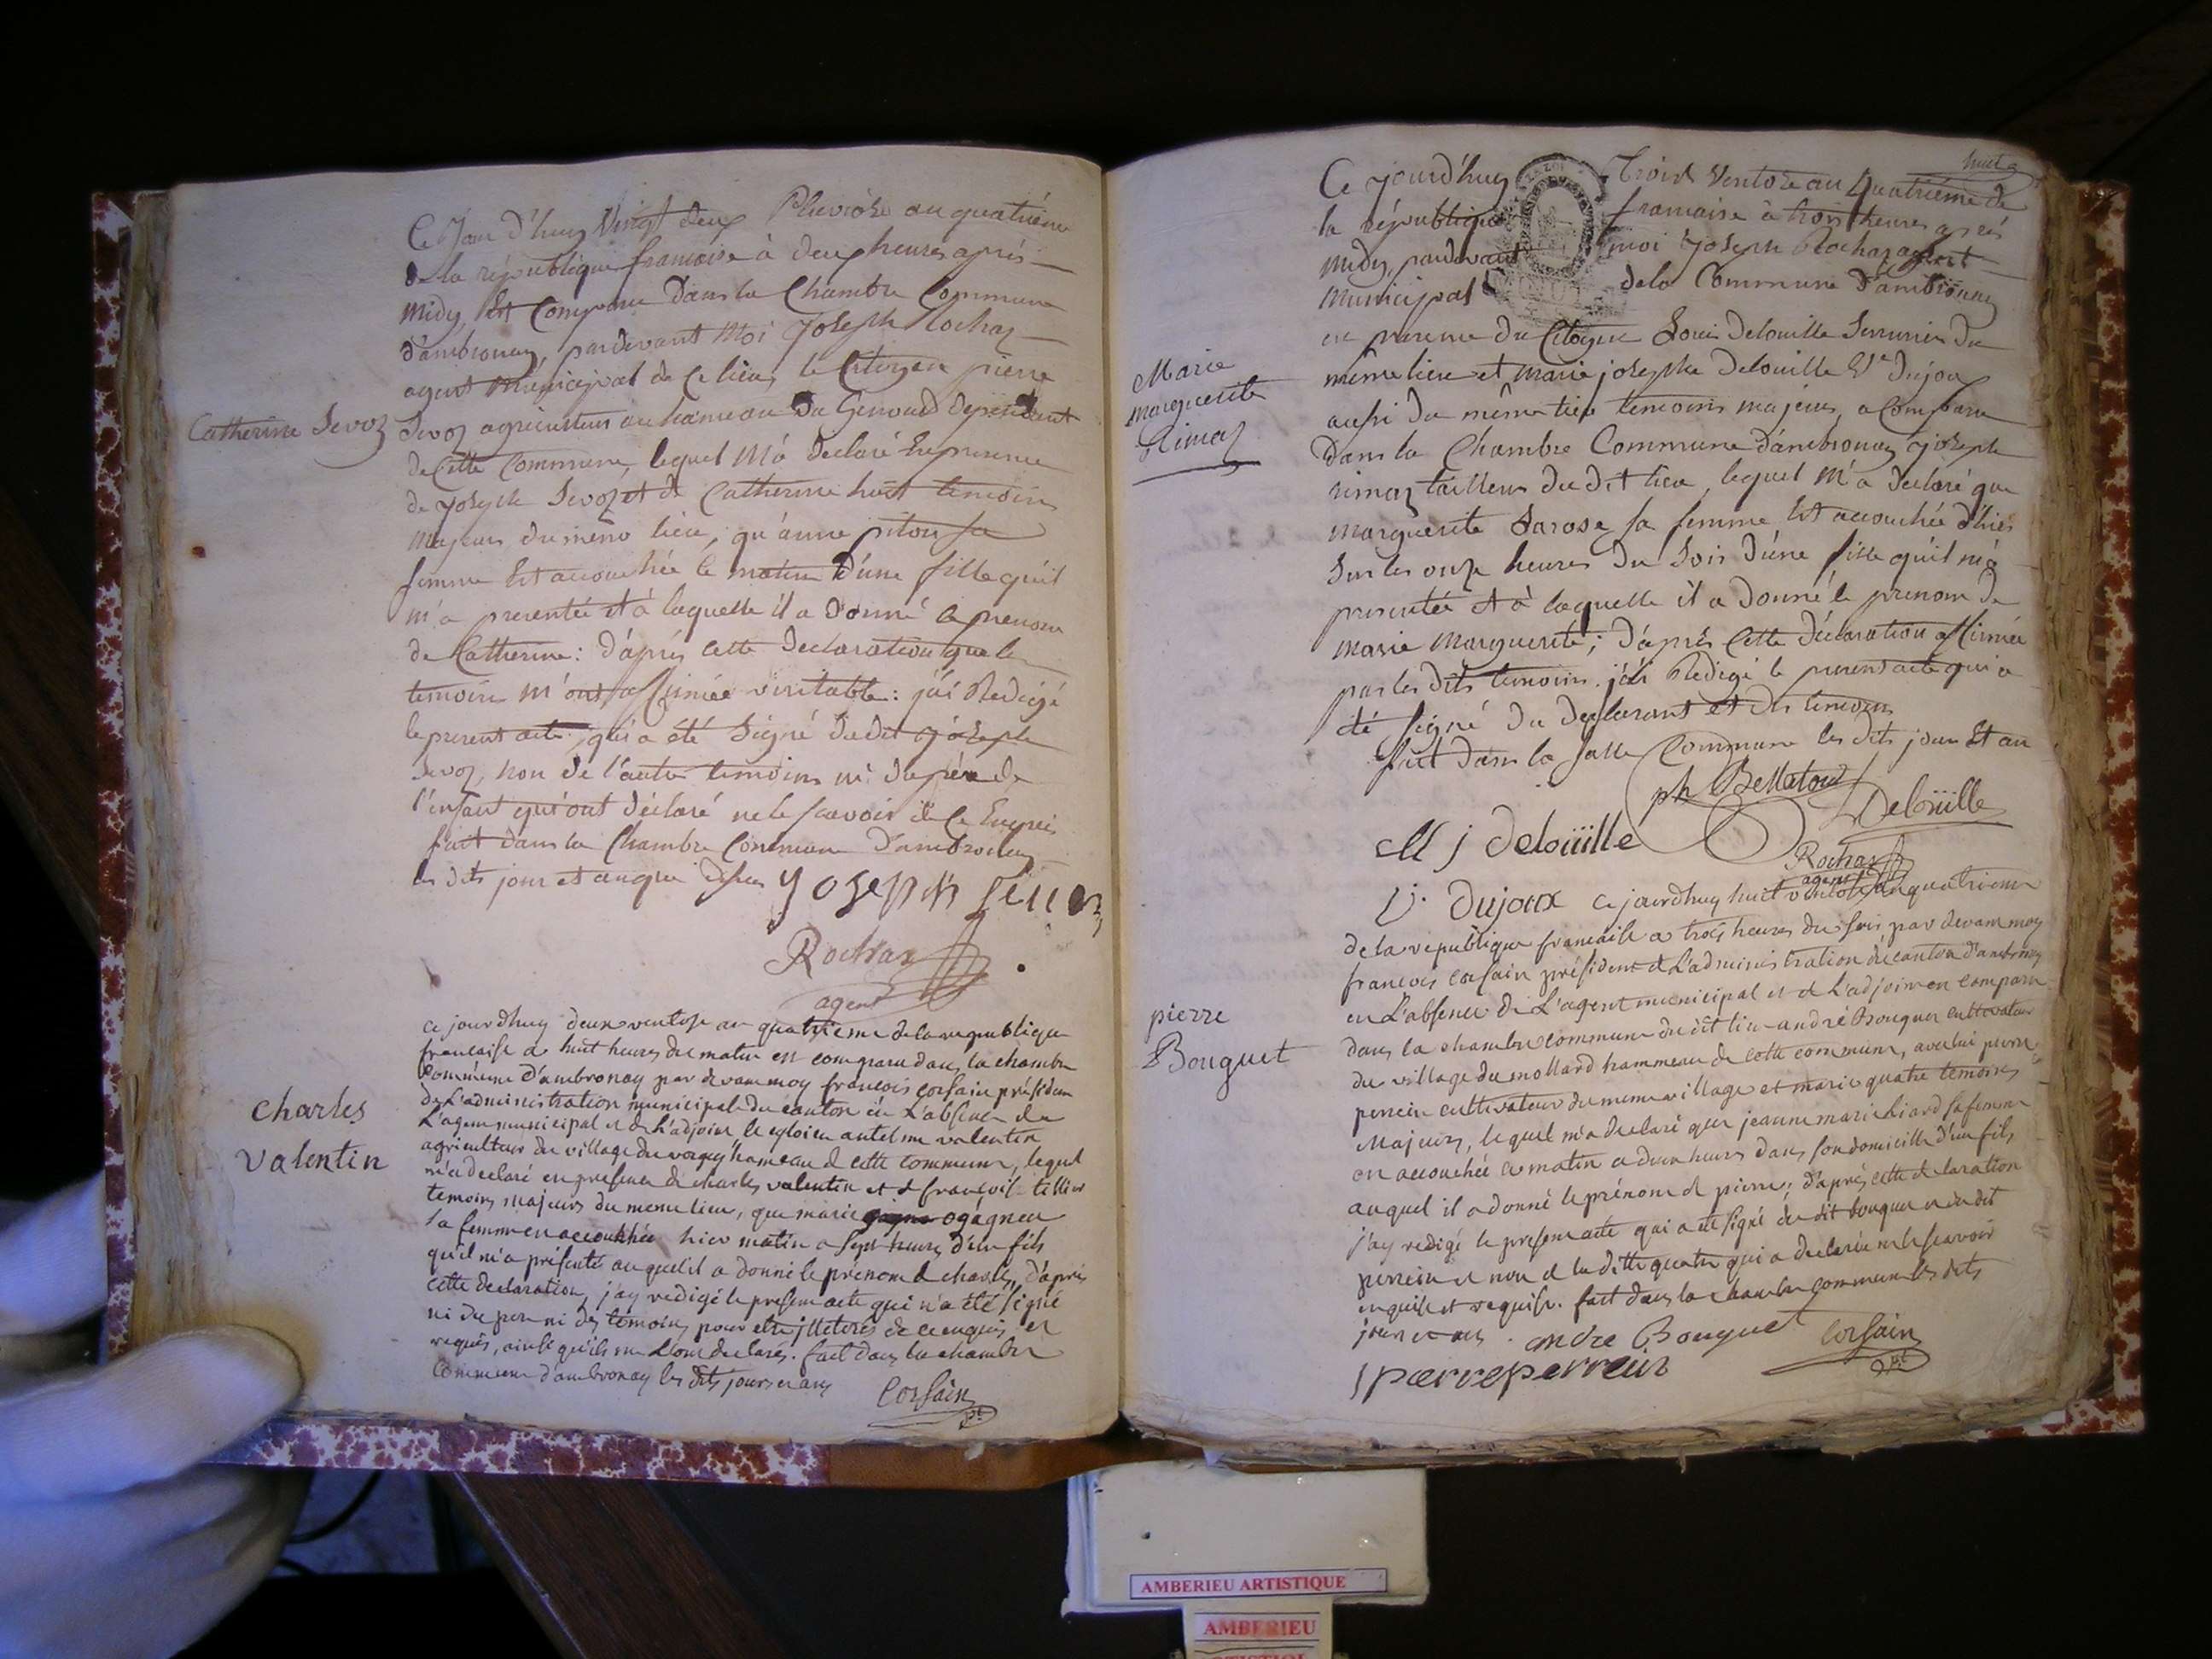 Catherine Sevoz
Ce Jour d'huy Vingt deux Pluviose an quatriéme
de la république francaise à deux heures aprés
midy Est Comparu dans la Chambre Commune
d'ambronay, pardevant Moi Joseph Rochaz
agent Municipal de Ce lieu, le Citoyen pierre
Sevoz agriculteur au hameau du Genoud dépendant
de Cette Commune, lequel M'a declaré En presence
de Joseph Sevoz et de Catherine huit temoins
Majeurs du même lieu, qu'anne pitou sa
femme Est accouchée le matin d'une fille qu'il
m'a presentée et à laquelle il a donné le prenom
de Catherine: d'aprés cette Declaration que les
temoins m'ont affirmée veritable: j'ai Redigé
le present acte, qui a été Signé du dit joseph
Sevoz, non de l'autre temoins ni du pére de
l'enfant qui ont déclaré ne le scavoir de Ce Enquis
fait dans la Chambre Commune d'ambronay
les dits jour et an que dessus Joseph Sevoz
Rochaz
agent
charles
valentin
ce jourdhuy deux ventose an quatrieme de la republique
francaise a huit heures du matin est comparu dans la chambre
commune d'ambronay par devant moy francois corsain présiden
de L'administration municipale du canton en L'absence de
L'agent municipal et de L'adjoint le citoien antelme valentin
agriculteur du village du vorgey hameau de cette commune, lequel
m'a declaré en presence de charles valentin et de francoise tellier
temoins majeurs du meme lieu, que marie ogagneu
sa femme en accouchée hier matin a sept heures d'un fils
qu'il m'a présenté auquel il a donné le prénom de charles, d'aprés
cette declaration, j'ay redigé le presem acte qui n'a été signé
ni du pere ni des témoins pour etre illeterés de ce enquis et
requis, ainsi qu'ils me L'ont declarés. fait dans la chambre
commune d'ambronay les dits jours et ans
Corsain
Pt
huit
Ce jourd'huy Trois Ventose an Quatriéme de
la république francaise à trois heures aprés
midy, pardevant moi Joseph Rochaz agent
Municipal de la Commune d'ambronay
en presence du Citoyen Louis Delouille Serrurier du
même lieu et marie josephe Delouille Ve Dujoux
aussi du même lieu temoins majeurs, a Comparu
dans la Chambre Commune d'ambronay joseph
rimaz tailleur du dit lieu, lequel M'a declaré que
marguerite Darose sa femme Est accouchée d'hier
Sur les onze heures du Soir d'une fille qu'il m'a
presentée et à laquelle il a donné le prenom de
marie marguerite; d'aprés Cette déclaration affirmée
par les dits temoins. j'ai Redigé le present acte qui a
été signé du declarant et des temoins
fait dans la Salle Commune les dits jour Et an
Marie
marguerite
Rimaz
ph Bellatour
Delouille
M j delouille
Rochaz
agent
V. Dujoux ce jourdhuy huit ventose an quatrieme
de la republique francaise a trois heures du soir par devant moy
francois corsain président de L'administration du canton d'ambronay
en L'absence de L'agent municipal et de L'adjoint en comparu
dans la chambre commune du dit lieu andré Bouguet cultivateur
du village du mollard hammeau de cette commune, avec lui pierre
perrein cultivateur du meme village et marie quatre temoins
Majeurs, lequel m'a declaré que jeanne marie Liard sa femme
en accouchée ce matin a deux heures dans son domicille d'un fils
auquel il a donné le prénom de pierre; d'aprés cette declaration
j'ay redigé le presem acte qui a été signé du dit bouguet et du dit
perrein et non de la ditte quatre qui a declarée ne le scavoir
enquise et requise. fait dans la chambre commune les dits
jours et ans. andre Bouguet Corsain
Pt
pierre perrein
pierre
Bouguet
AMBERIEU ARTISTIQUE
AMBERIEU
ARTISTIQUE